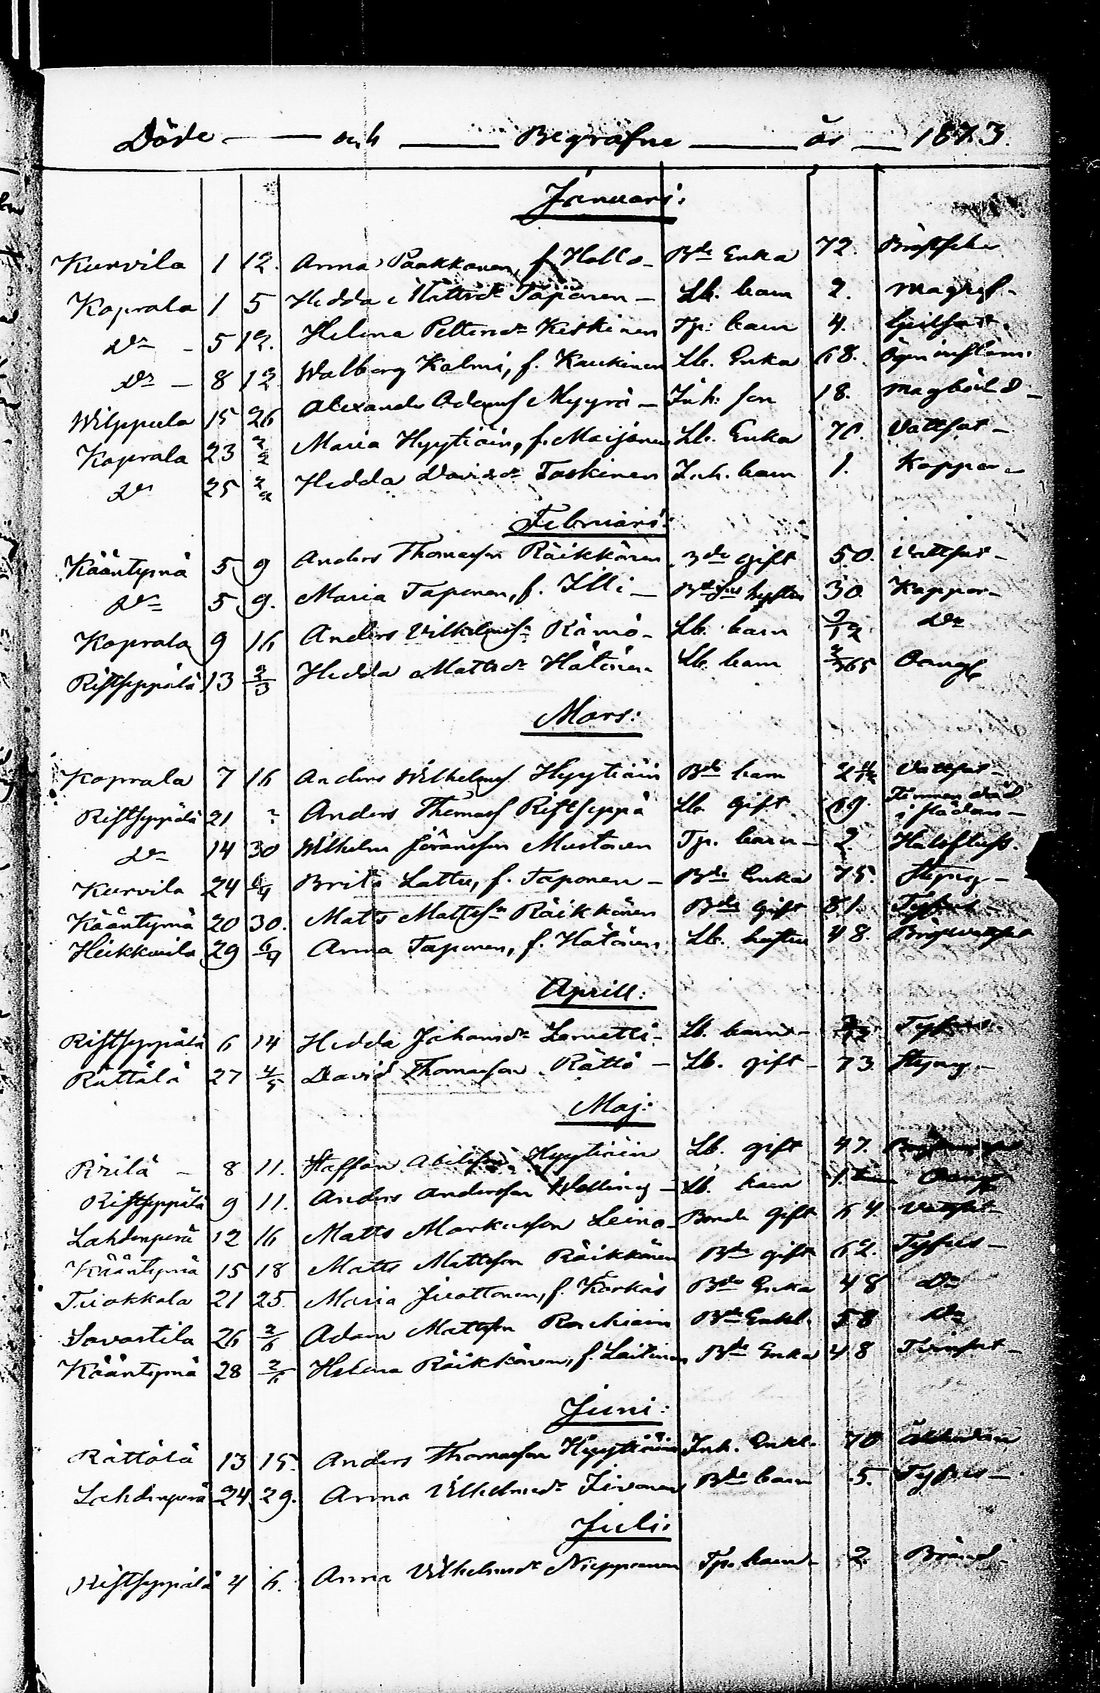 Döde — och — Begrafne — år — 1873.
Januari:
Kurvila 1 12. Anna Paakkonen, f. Hollo — Bde Enka 72. Bröstfeber
Koprala 1 5 Hedda Mattsdr Taponen — Lb. barn 2.
Do — 5 12. Helena Pettersdr Kiskinen Tp. barn 4.
Do — 8 12 Walborg Kalmi, f. Kaukinen Lb. Enka 68. Ögon inflam.
Wilppula 15 26 Alexander Adamsf Myyrä — Inh. son 18. magböld —
Koprala 23 2/2 Maria Hyytiäin, f. Maijanen Lb. Enka 70. Vattsot —
Do 25 2/2 Hedda Davidsdr Toskinen Inh. barn 1. Koppor —
Februari:
Kääntymä 5 9 Anders Thomasson Räikkönen Bde gift 50. Vattsot —
Do 5 9. Maria Taponen, f. Illi — hustru 30. Koppor —
Koprala 9 16 Anders Vilhelmsn Rämö — Lb. barn 9/12 Do
Ristseppälä 13 2/3 Hedda Mattsdr Hätönen Lb. barn 3/365
Mars:
Koprala 7 16 Anders Wilhelmsf Hyytiäin Bde barn Vattsot —
Ristseppälä 21 ? Anders Thomasf Ristseppä Lb. gift 69.
Do 14 30 Wilhelm Göransson Mustonen Tp. barn — 2 Halsfluss.
Kurvila 24 6/4 Brita Lattu, f. Taponen — Bde Enka 75. Styng —
Kääntymä 20 30. Matts Mattsfn Räikkönen Bde gift 81. Tyfus —
Heikkurila 29 6/4 Anna Taponen, f. Hätönen Lb. hustru 48.
Aprill:
Ristseppälä 6 14 Hedda Johansdr Lametti — Lb. barn — Tyfus.
Rättölä 27 4/5 David Thomasson Rättö — Lb. gift — 73 Styng —
Maj:
Pirilä — 8 11. Staffan Hyytiäin Lb. gift 47.
Ristseppälä 9 11. Anders Andersson Welling — Lb. barn
Lahdenperä 12 16 Matts Markusson Leino — Bonde gift 64. Vattsot —
Kääntymä 15 18 Matts Mattsson Räikkönen Bde gift 62. Tyfus —
Tuokkola 21 25. Maria Juottonen, f. Karkas Bde Enka 48 Do
Savartila 26 2/6 Adam Mattsson Bde Enkl. 58 Do
Kääntymä 28 2/6 Helena Räikkönen, f. Laitinen Bde Enka 48 Tvinsot —
Juni:
Rättölä 13 15. Anders Thomasson Hyytiäin Inh. Enkl. 70
Lahdenperä 24 29. Anna Vilhelmsdr Sivonen Bde barn 5. Tyfus —
Juli:
Ristseppälä 4 6. Anna Vilhelmsdr Nuppanen Tp. barn — 2.